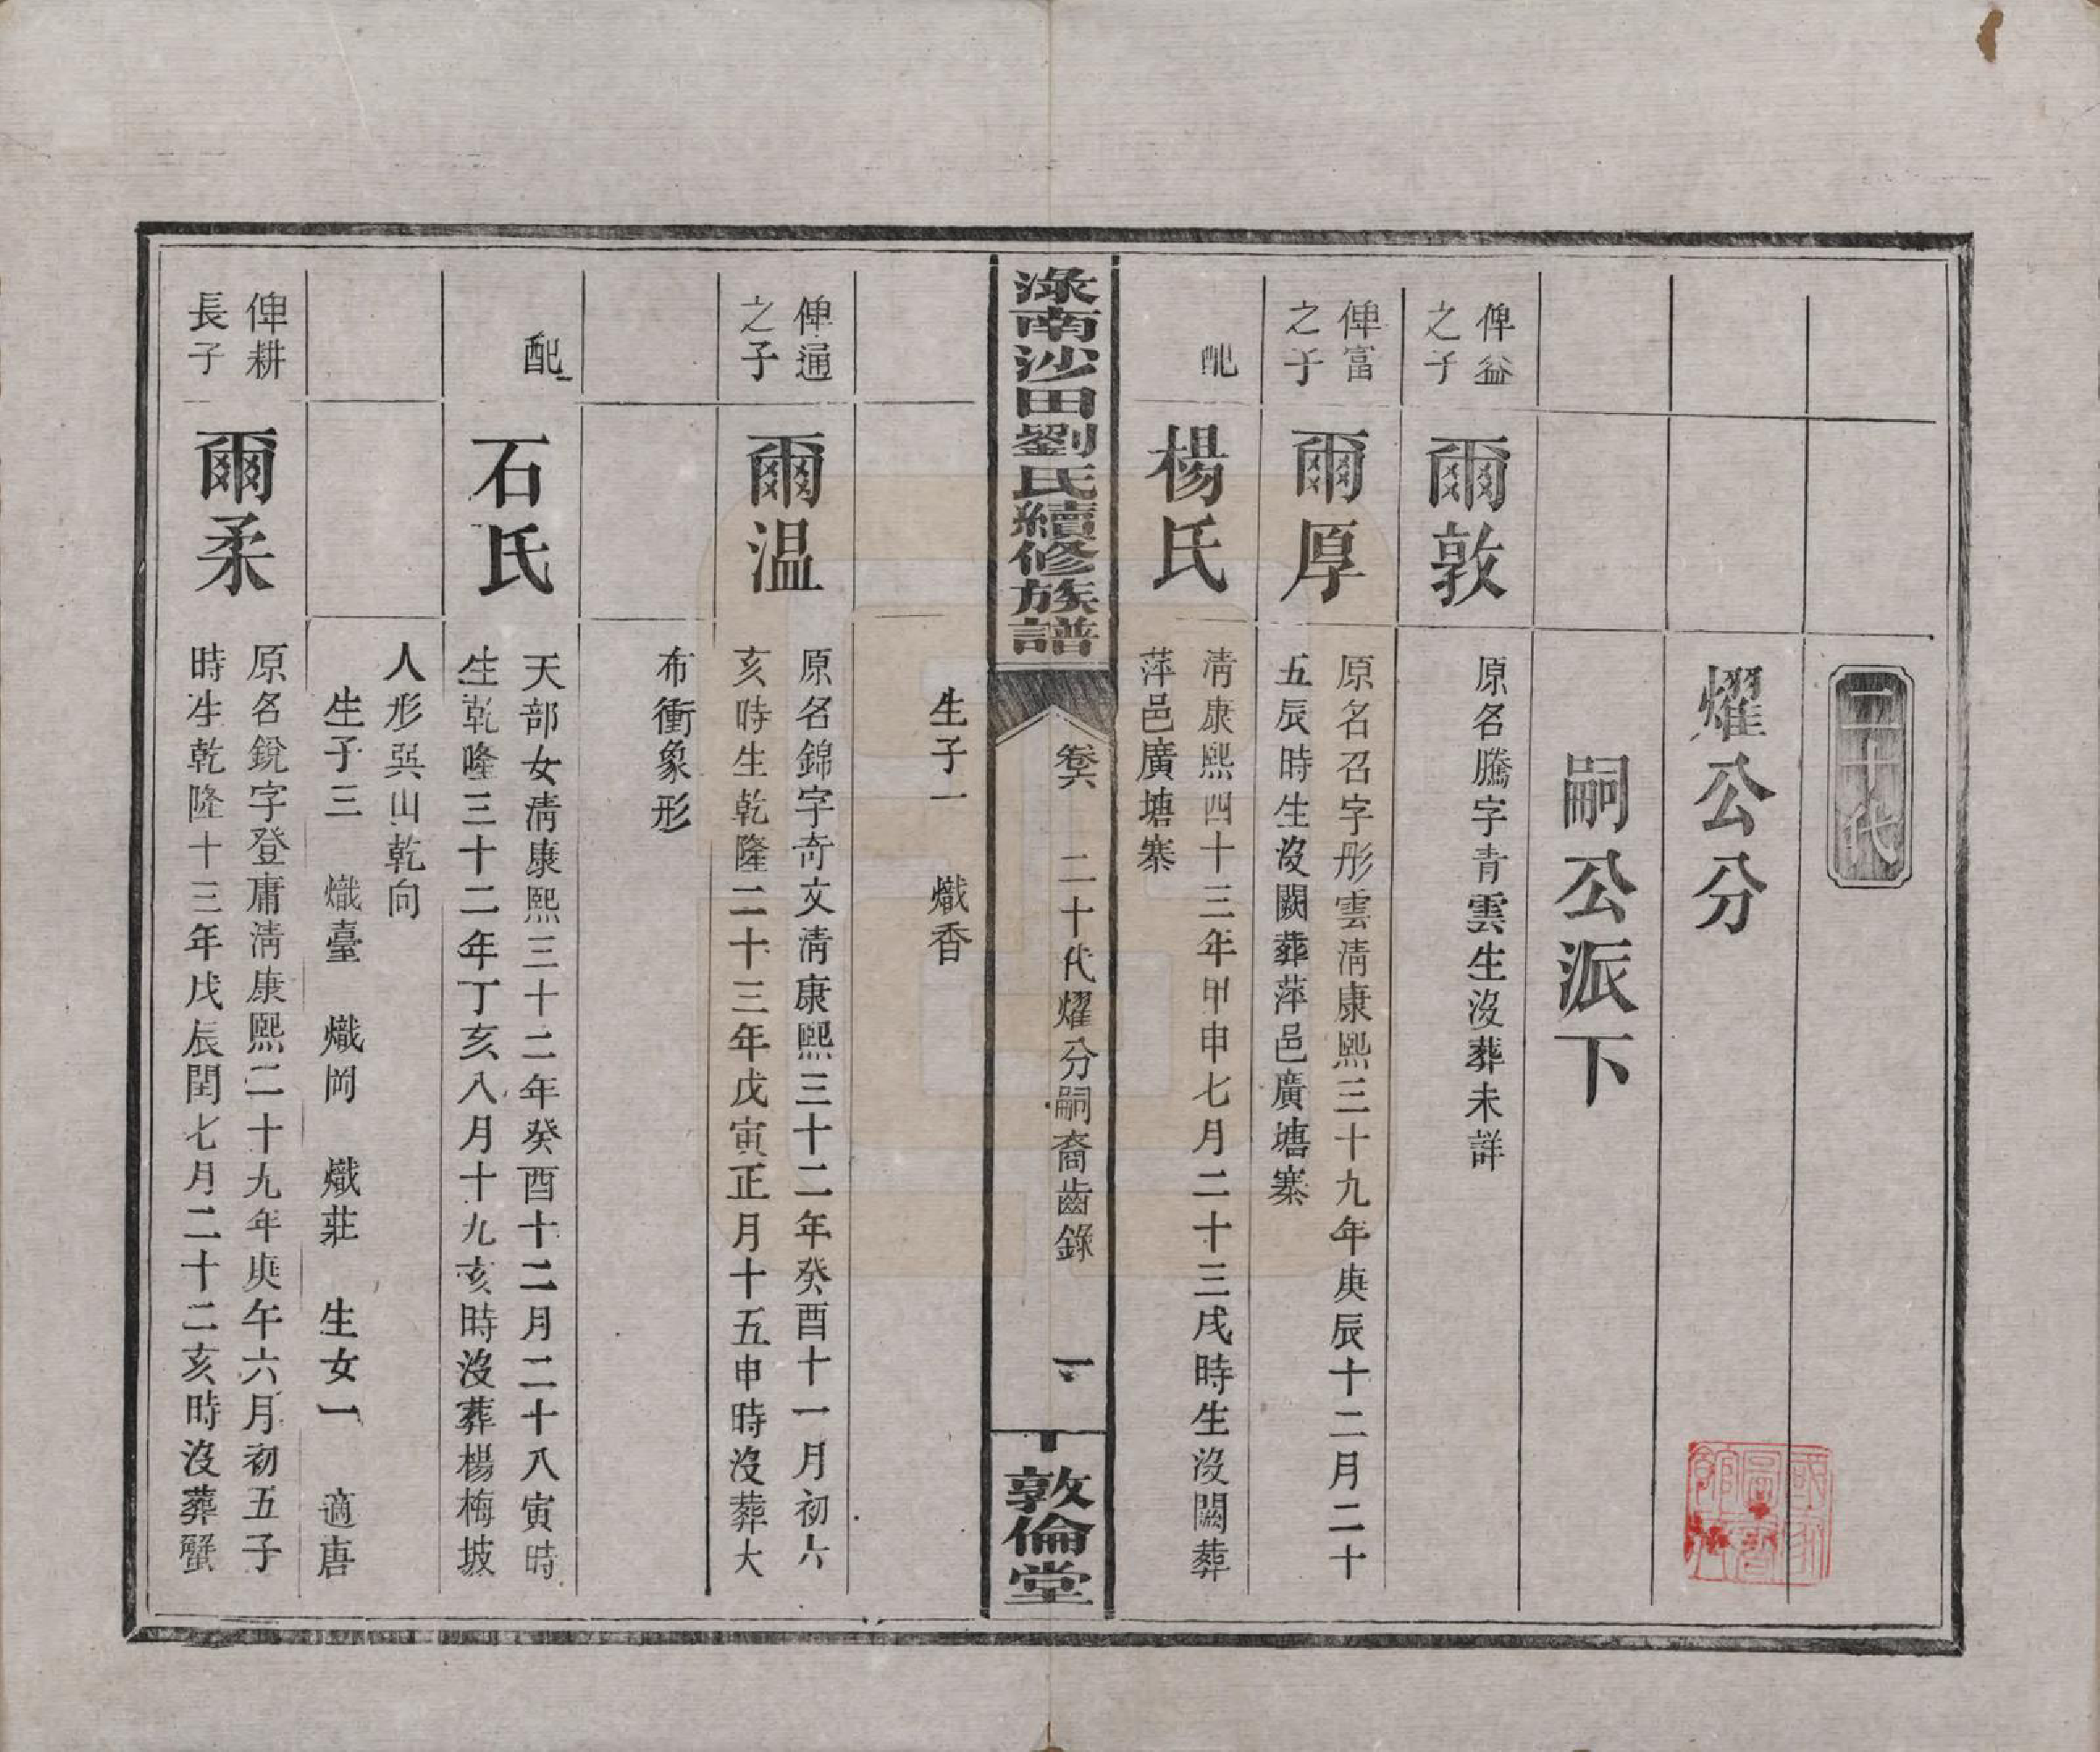 二十代
燿公分
嗣公派下
俾益
之子
爾敦
原名騰字青雲生沒葬未詳
俾富
之子
爾厚
原名召字彤雲清康熙三十九年庚辰十二月二十
五辰時生沒闕葬萍邑廣塘寨
配
楊氏
清康熙四十三年甲申七月二十三戌時生沒闕葬
萍邑廣塘寨
淥南沙田劉氏續修族譜
卷六
二十代燿分嗣裔齒錄
一
敦倫堂
生子一 熾香
俾通
之子
爾温
原名錦字奇文清康熙三十二年癸酉十一月初六
亥時生乾隆二十三年戊寅正月十五申時沒葬大
布衝象形
配
石氏
天部女清康熙三十二年癸酉十二月二十八寅時
生乾隆三十二年丁亥八月十九亥時沒葬楊梅坡
人形巽山乾向
生子三 熾臺 熾岡 熾莊 生女一 適唐
俾耕
長子
爾柔
原名銳字登庸清康熙二十九年庚午六月初五子
時生乾隆十三年戊辰閏七月二十二亥時沒葬蟹